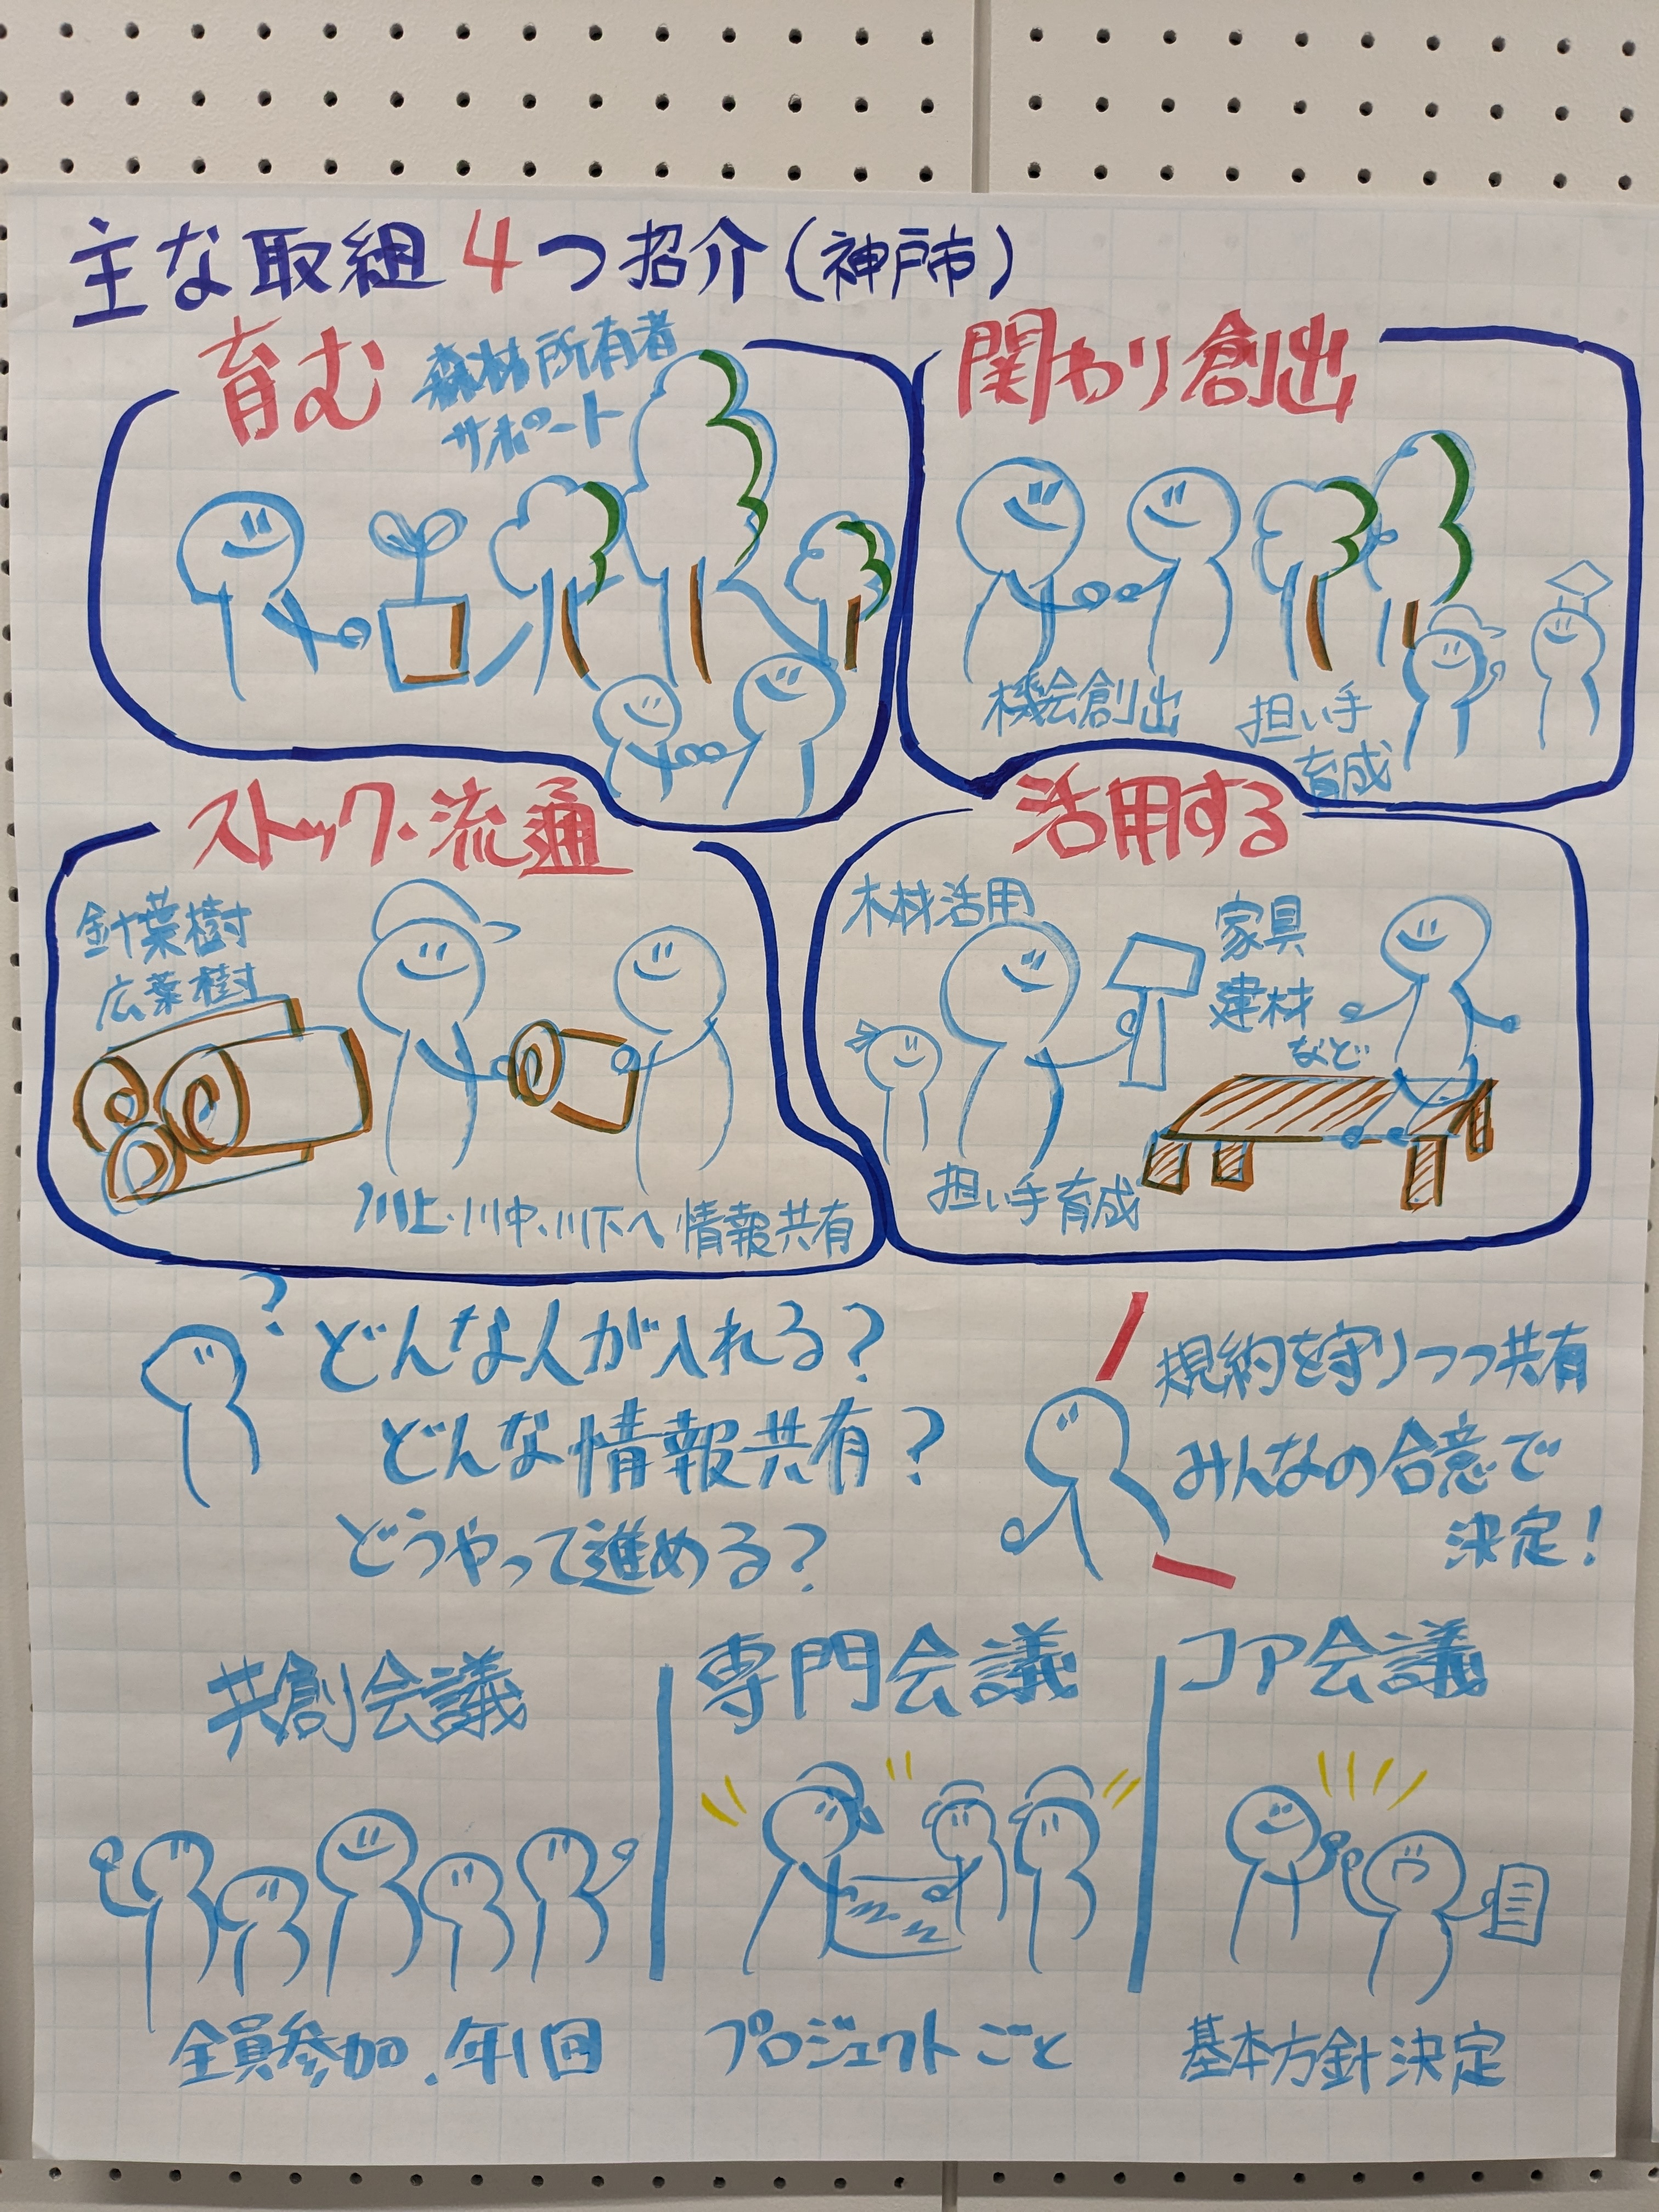 主な取組4つ紹介(神戸市)
育む
森林所有者
サポート
関わり創出
機会創出
担い手
育成
ストック・流通
針葉樹
広葉樹
川上・川中、川下へ情報共有
活用する
木材活用
家具
建材
など
担い手育成
?
どんな人が入れる?
どんな情報共有?
どうやって進める?
規約を守りつつ共有
みんなの合意で
決定!
共創会議
全員参加、年1回
専門会議
プロジェクトごと
コア会議
基本方針決定